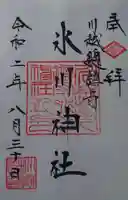 奉拝
川越総鎮守
氷川神社
令和二年八月三十日